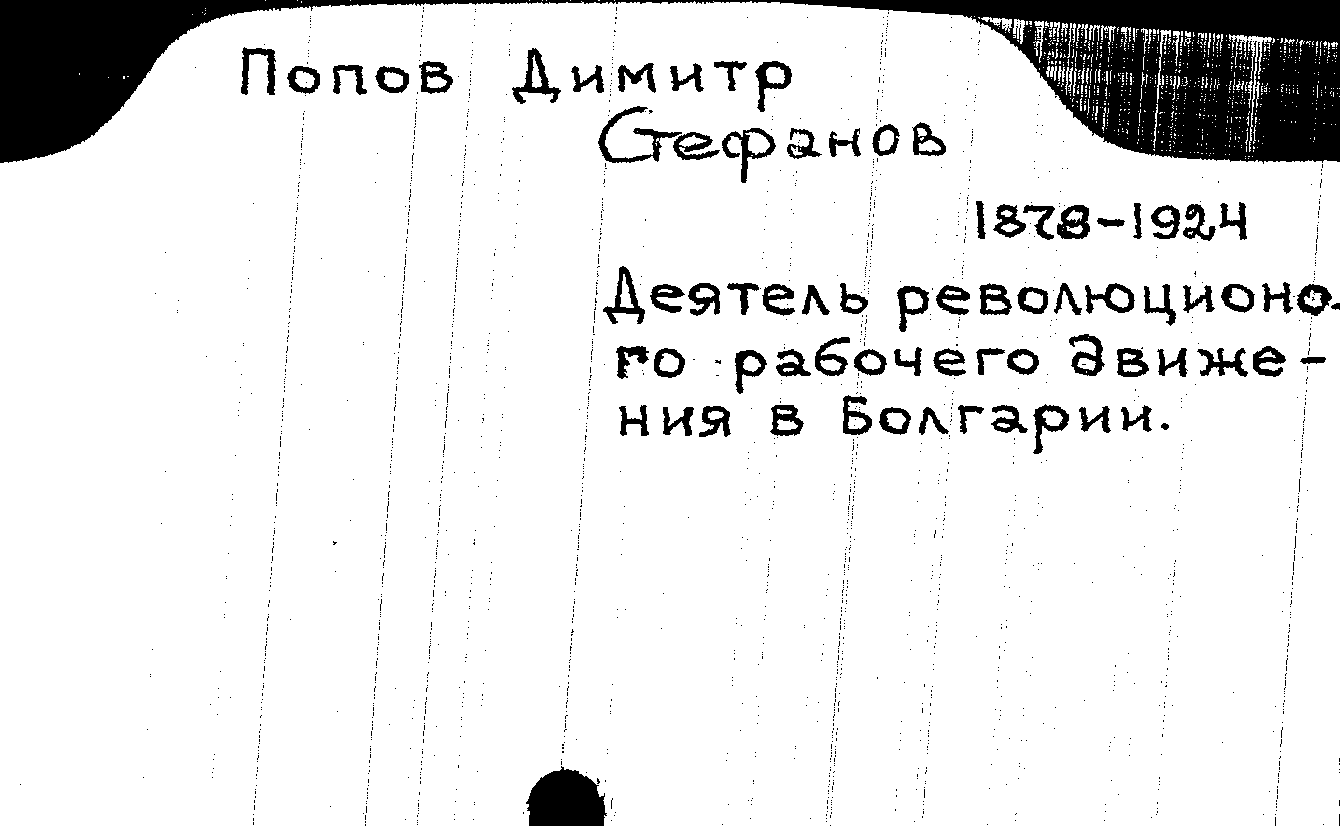 Попов Димитр
Стефанов
1878-1924
Деятель революционо-
го рабочего движе-
ния в Болгарии.